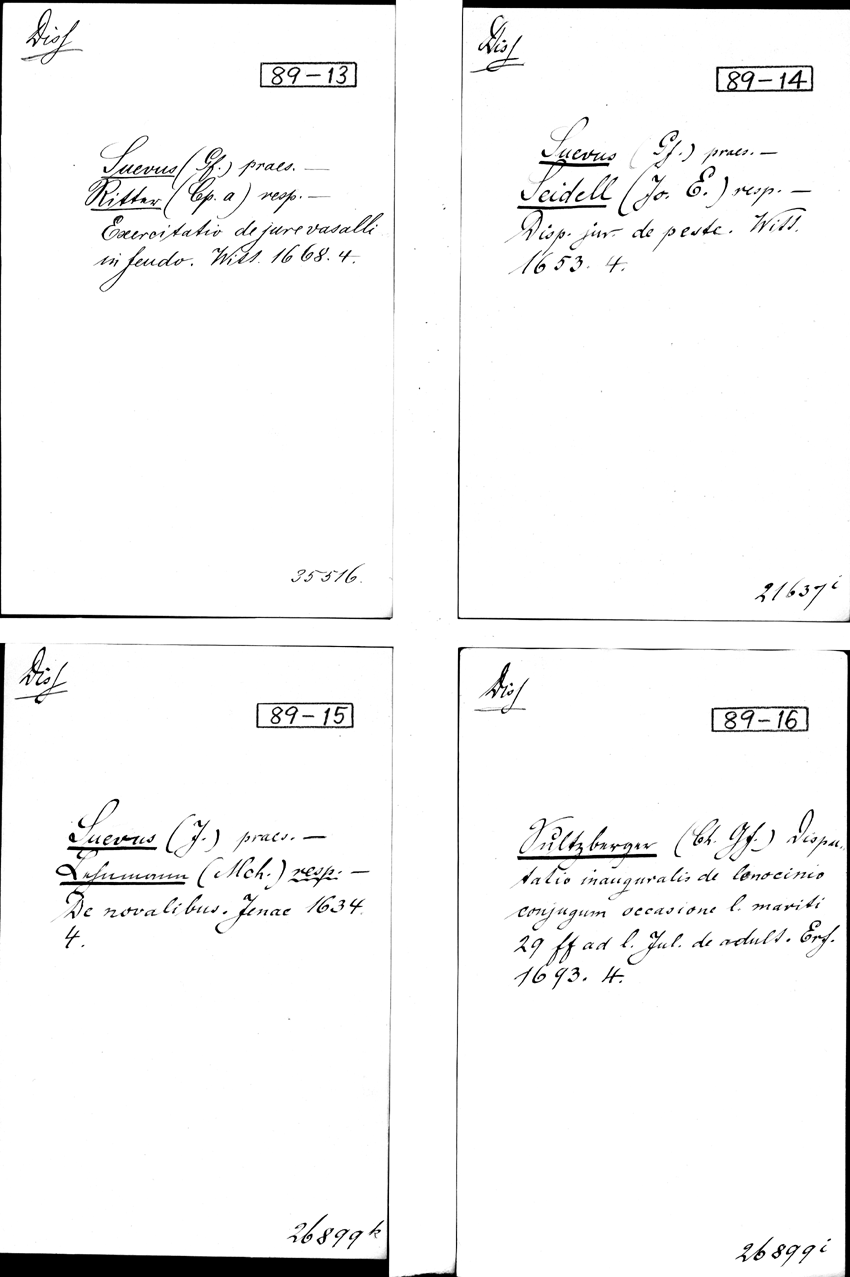 Diss
89-13
Suevus (Gf.) praes. —
Ritter (Cp. a) resp. —
Exercitatio de jure vasalli
in feudo. Witt. 1668. 4.
35516.
Diss
89-14
Suevus (Gf.) praes. —
Seidell (Jo. E.) resp. —
Disp. jur. de peste. Witt.
1653. 4.
21637 i
Diss
89-15
Suevus (J.) praes. —
Lehmann (Mch.) resp. —
De novalibus. Jenae 1634.
4.
26899 k
Diss
89-16
Sultzberger (Ch. Gf.) Dispu-
tatio inauguralis de lenocinio
conjugum occasione l. mariti
29 ff ad l. Jul. de adult. Erf.
1693. 4.
26899 i